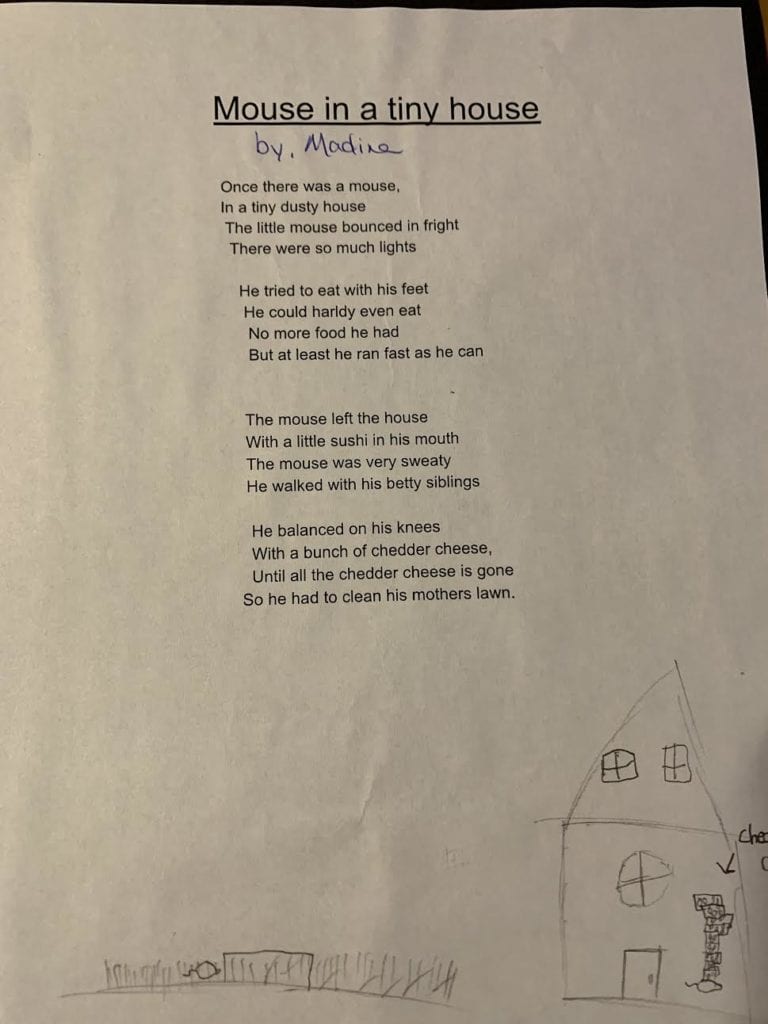 Mouse in a tiny house
by. Madina
Once there was a mouse,
In a tiny dusty house
The little mouse bounced in fright
There were so much lights
He tried to eat with his feet
He could harldy even eat
No more food he had
But at least he ran fast as he can
The mouse left the house
With a little sushi in his mouth
The mouse was very sweaty
He walked with his betty siblings
He balanced on his knees
With a bunch of chedder cheese,
Until all the chedder cheese is gone
So he had to clean his mothers lawn.